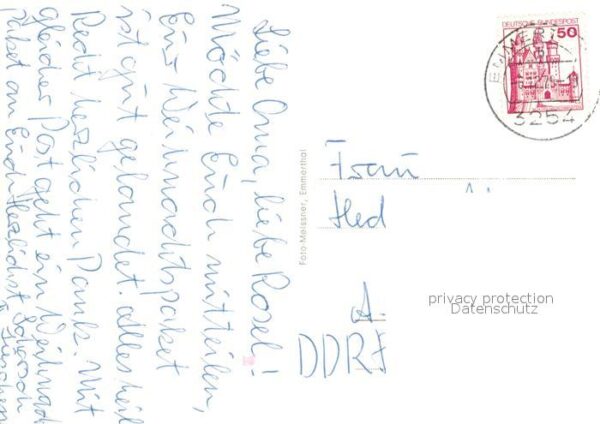 Liebe Oma, liebe Rosel!
Möchte Euch mitteilen,
Eur Weihnachtspaket
ist gut gelandet. alles heil
Recht herzlichen Dank. Mit
gleicher Post geht ein Weihnach
paket an Euch Herzlichst
Foto-Meissner, Emmerthal
DEUTSCHE BUNDESPOST
50
EMMERT
3254
Frau
Hed
A.
DDR
privacy protection
Datenschutz